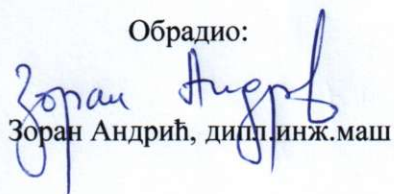 Обрадио:
Зоран Андрић
Зоран Андрић, дипл.инж.маш